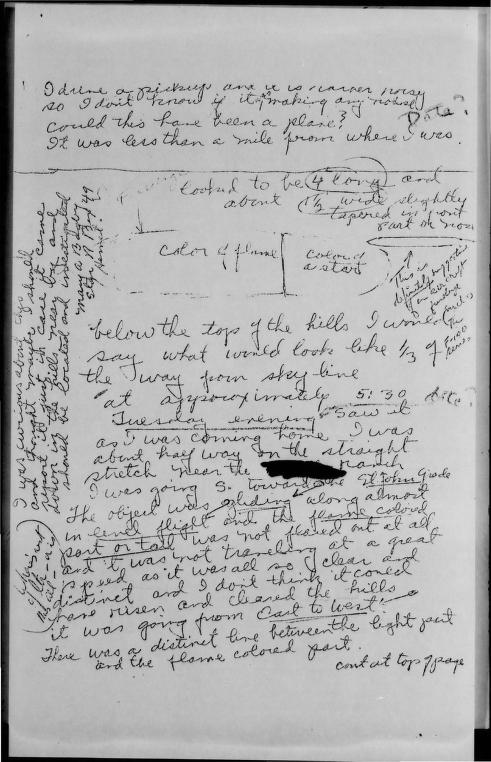 I drive a pickup and it is rather noisy
so I don't know if it making any noise
could this have been a plane?
Date?
It was less than a mile from where I was.
looked to be 4 long and
about 1½ wide slightly
tapered in front
East or nose
color of flame
color of
a star
This is
definitely
below the top of the hills I would
say what would look like 1/3 of
the way from sky line
at approximately 5:30
Tuesday evening Saw it
as I was coming home I was
about half way on the straight
stretch near the ranch
I was going S. toward the St John Grade
The object was gliding along almost
in level flight and the flame colored
part or tail was not flared out at all
and it was not traveling at a great
speed as it was all so clear and
distinct and I don't think it could
have risen and cleared the hills
it was going from East to West.
There was a distinct line between the light part
and the flame colored part.
cont at top of page
I was curious about it
and thought maybe I should
report it in case it came
down in the hills near by and
should be located and investigated
Mary